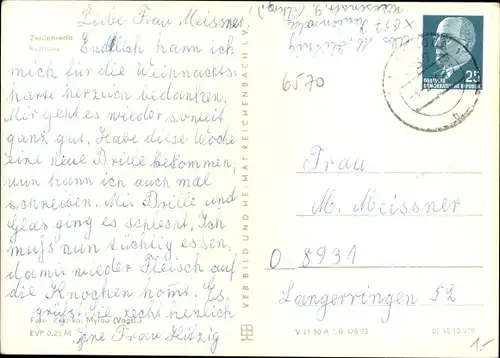 Liebe Frau Meissner.
Zeulenroda
Rathaus
Endlich kann ich
mich für die Weihnachts-
karte herzlich bedanken.
Mir geht es wieder soweit
ganz gut. Habe diese Woche
eine neue Brille bekommen,
nun kann ich auch mal
schreiben. Mit Brille und
Glas ging es schlecht. Ich
muß nun tüchtig essen,
damit wieder Fleisch auf
die Knochen komt. Es
grüßt Sie recht herzlich
Ihre Frau Hitzig
Foto Zschko, Mylau (Vogtl.)
EVP 0,25 M
VEB BILD UND HEIMAT REICHENBACH I. V.
Abs. M. Hitzig
X 657 Zeulenroda
6570
DEUTSCHE
DEMOKRATISCHE REPUBLIK
25
Frau
M. Meissner
O 8931
Langerringen 52
V 11 50 A 5/B 178/73
01 10 10 079
1.-